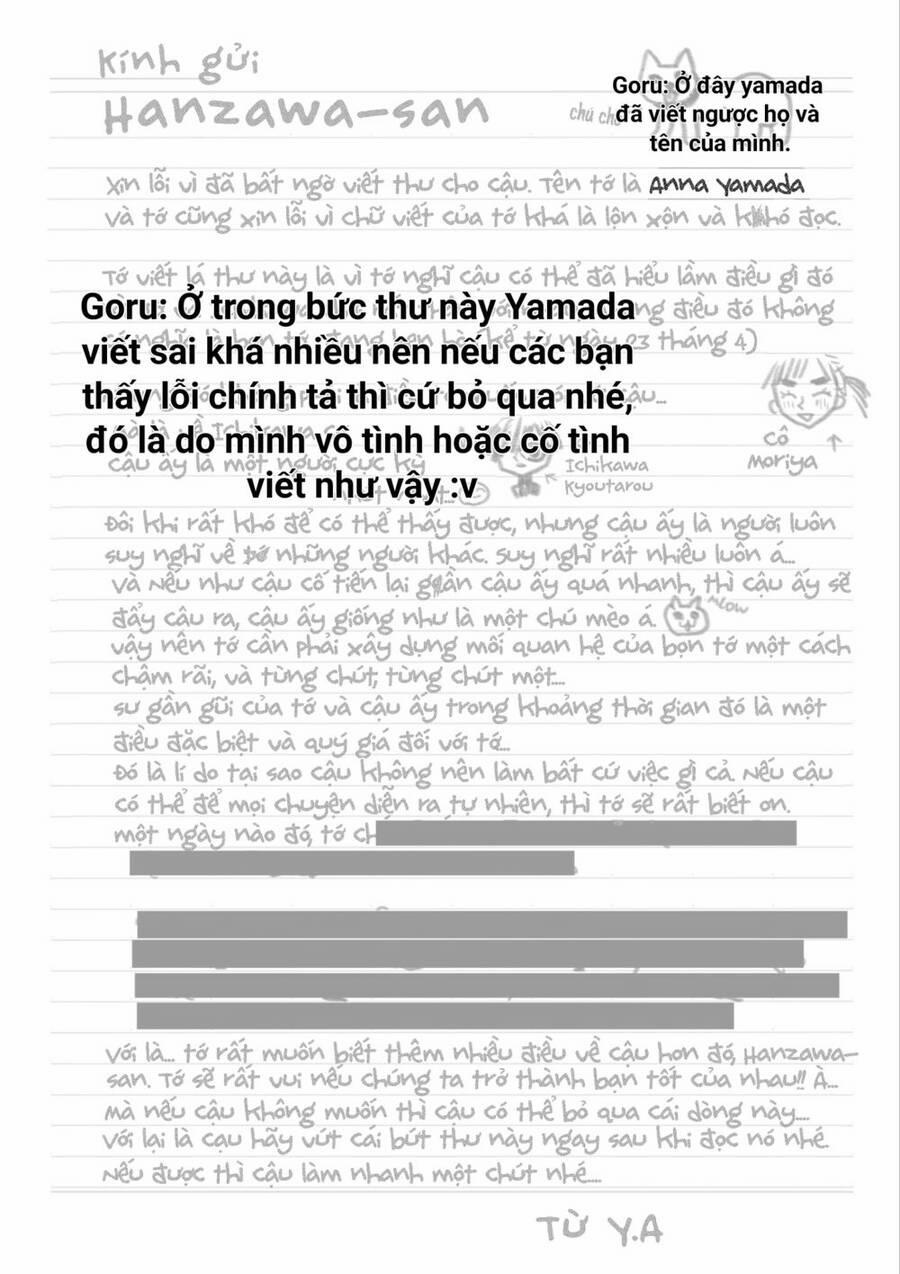 Kính gửi
Hanzawa-san
chú chó
Goru: Ở đây yamada
đã viết ngược họ và
tên của mình.
Xin lỗi vì đã bất ngờ viết thư cho cậu. Tên tớ là Anna Yamada
và tớ cũng xin lỗi vì chữ viết của tớ khá là lộn xộn và khó đọc.
Tớ viết lá thư này là vì tớ nghĩ cậu có thể đã hiểu lầm điều gì đó
Goru: Ở trong bức thư này Yamada
viết sai khá nhiều nên nếu các bạn
thấy lỗi chính tả thì cứ bỏ qua nhé,
đó là do mình vô tình hoặc cố tình
viết như vậy :v
điều đó không
kể từ ngày 23 tháng 4)
cậu...
cô
Moriya
cậu ấy là một người cực kỳ
Ichikawa
Kyoutarou
Đôi khi rất khó để có thể thấy được, nhưng cậu ấy là người luôn
suy nghĩ về những người khác. Suy nghĩ rất nhiều luôn á...
và Nếu như cậu cố tiến lại gần cậu ấy quá nhanh, thì cậu ấy sẽ
đẩy câu ra, cậu ấy giống như là một chú mèo á.
Meow
vậy nên tớ cần phải xây dựng mối quan hệ của bọn tớ một cách
chậm rãi, và từng chút, từng chút một...
sư gần gũi của tớ và cậu ấy trong khoảng thời gian đó là một
điều đặc biệt và quý giá đối với tớ...
Đó là lí do tại sao cậu không nên làm bất cứ việc gì cả. Nếu cậu
có thể để mọi chuyện diễn ra tự nhiên, thì tớ sẽ rất biết ơn.
một ngày nào đó, tớ
Với là... tớ rất muốn biết thêm nhiều điều về cậu hơn đó, Hanzawa-
san. Tớ sẽ rất vui nếu chúng ta trở thành bạn tốt của nhau!! À...
mà nếu cậu không muốn thì cậu có thể bỏ qua cái dòng này....
Với lại là cạu hãy vứt cái bút thư này ngay sau khi đọc nó nhé.
Nếu được thì cậu làm nhanh một chút nhé....
TỪ Y.A